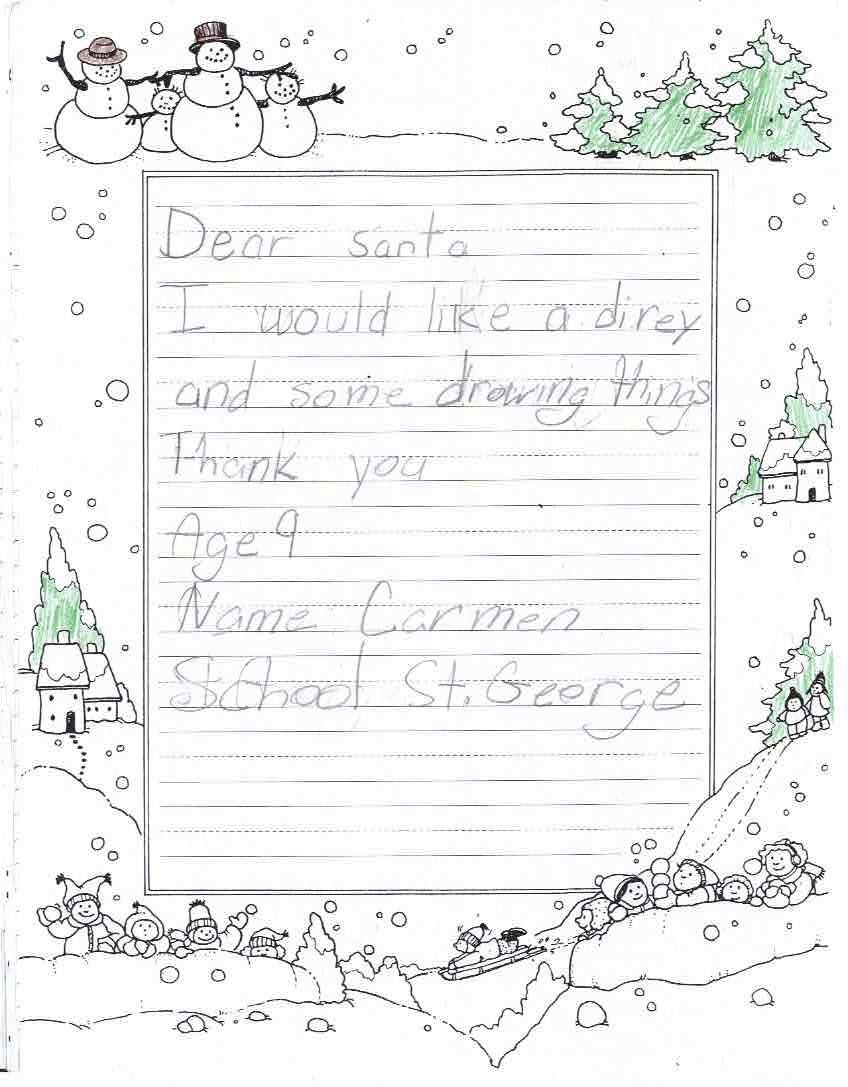 Dear santa
I would like a direy
and some drowing things
Thank you
Age 9
Name Carmen
School St. George